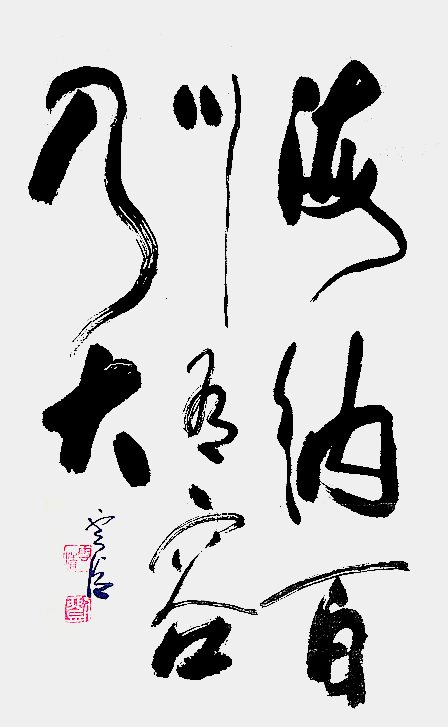 海纳百
川有容
乃大